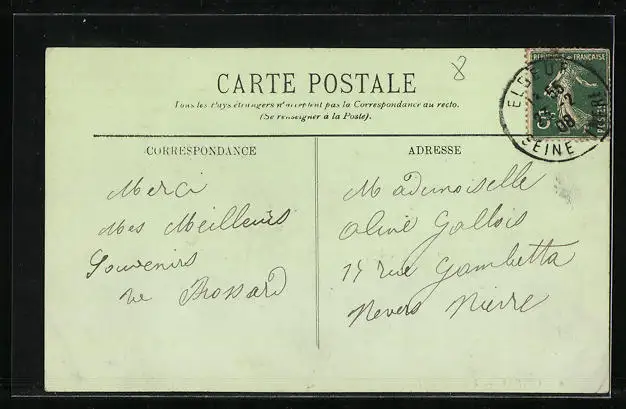 8
CARTE POSTALE
Tous les Pays étrangers n'acceptent pas la Correspondance au recto.
(Se renseigner à la Poste).
REPUBLIQUE FRANÇAISE
POSTES
ELBEUF
SEINE
08
CORRESPONDANCE
Merci
Mes Meilleurs
Souvenirs
ADRESSE
Mademoiselle
Gallois
rue Gambetta
Nevers Nievre